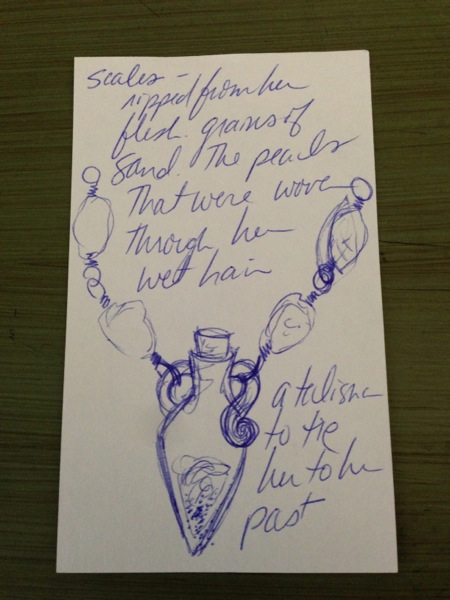 scales –
ripped from her
flesh. grains of
sand. The pearls
That were wove
through her
wet hair
a talisman
to tie
her to her
past